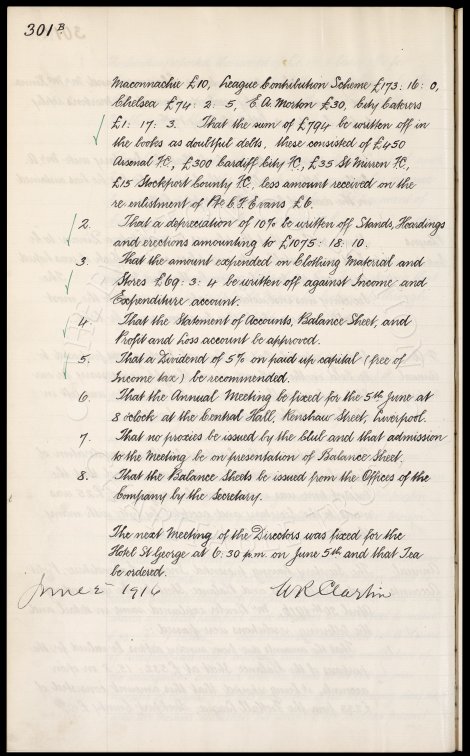 301B
Maconnachie £10, League Contribution Scheme £173: 16: 0,
Chelsea £74: 2: 5, E. A. Morton £30, City Caterers
£1: 17: 3. That the sum of £794 be written off in
the books as doubtful debts, these consisted of £450
Arsenal FC, £300 Cardiff City FC, £35 St Mirren FC,
£15 Stockport County FC, less amount received on the
re-enlistment of Pte C. F. Evans £6.
2. That a depreciation of 10% be written off Stands, Hoardings
and erections amounting to £1075: 18: 10.
3. That the amount expended on Clothing Material and
Stores £69: 3: 4 be written off against Income and
Expenditure account.
4. That the Statement of Accounts, Balance Sheet, and
Profit and Loss account be approved.
5. That a Dividend of 5% on paid up capital (free of
Income tax) be recommended.
6. That the Annual Meeting be fixed for the 5th June at
8 oclock at the Central Hall, Renshaw Street, Liverpool.
7. That no proxies be issued by the Club and that admission
to the Meeting be on presentation of Balance Sheet.
8. That the Balance Sheets be issued from the Offices of the
Company by the Secretary.
The next Meeting of the Directors was fixed for the
Hotel St George at 6.30 p.m. on June 5th and that Tea
be ordered.
June 5 1916 W R Clayton